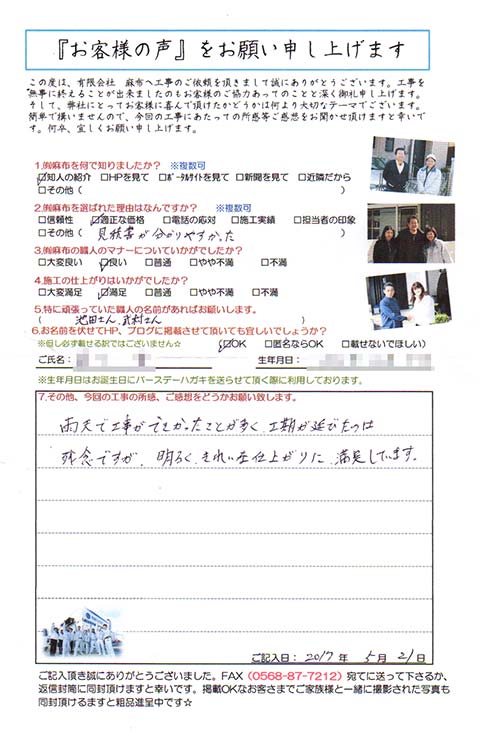 『お客様の声』をお願い申し上げます
この度は、有限会社 麻布へ工事のご依頼を頂きまして誠にありがとうございます。工事を
無事に終えることが出来ましたのもお客様のご協力あってのことと深く御礼申し上げます。
そして、弊社にとってお客様に喜んで頂けたかどうかは何より大切なテーマでございます。
簡単で構いませんので、今回の工事にあたっての所感等ご感想をお聞かせ頂けますと幸いで
す。何卒、宜しくお願い申し上げます。
1.㈲麻布を何で知りましたか? ※複数可
☑知人の紹介 □HPを見て □ポータルサイトを見て □新聞を見て □近隣だから
□その他( )
2.㈲麻布を選ばれた理由はなんですか? ※複数可
□信頼性 ☑適正な価格 □電話の応対 □施工実績 □担当者の印象
□その他( 見積書が分かりやすかった )
3.㈲麻布の職人のマナーについていかがでしたか?
□大変良い ☑良い □普通 □やや不満 □不満
4.施工の仕上がりはいかがでしたか?
□大変満足 ☑満足 □普通 □やや不満 □不満
5.特に頑張っていた職人の名前があればお願いします。
( 池田さん、武村さん )
6.お名前を伏せてHP、ブログに掲載させて頂いても宜しいでしょうか?
※但し必ず載せる訳ではございません☆ ☑OK □匿名ならOK □載せないでほしい)
ご氏名: 生年月日:
※生年月日はお誕生日にバースデーハガキを送らせて頂く際に利用しております。
7.その他、今回の工事の所感、ご感想をどうかお願い致します。
雨天で工事ができなかったことが多く、工期が延びたのは
残念ですが、明るく、きれいな仕上がりに、満足しています。
ご記入日: 2017 年 5 月 21 日
ご記入頂き誠にありがとうございました。FAX(0568-87-7212)宛てに送って下さるか、
返信封筒に同封頂けますと幸いです。掲載OKなお客さまでご家族様と一緒に撮影された写真も
同封頂けるますと粗品進呈中です☆